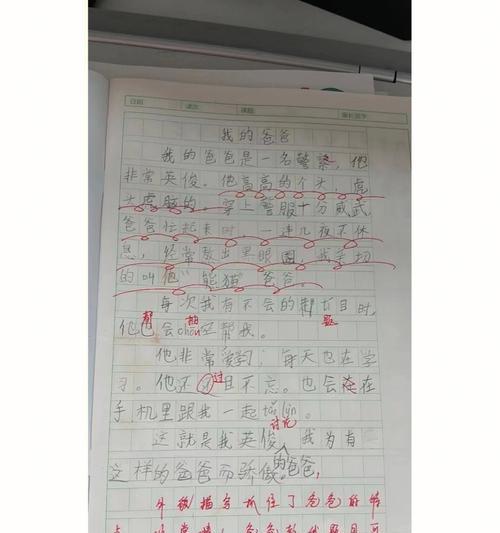 我的爸爸
我的爸爸是一名警察,他
非常英俊。他高高的个头,虎
头虎脑的,穿上警服十分威武,
爸爸忙起来时,一连几夜不休
息,经常熬出黑眼圈,我亲切
的叫他"熊猫"爸爸。
每次我有不会的 题目时,
帮 抽 题
他也会chōu空帮我。
他非常爱学习;每天也在学
习。他还 过目不忘。也会 在
手机里跟我一起tǎo lùn。
讨论
这就是我英俊 我为有
的爸爸,
这样的爸爸而骄傲。
外貌描写抓住了爸爸的特
点 爸爸